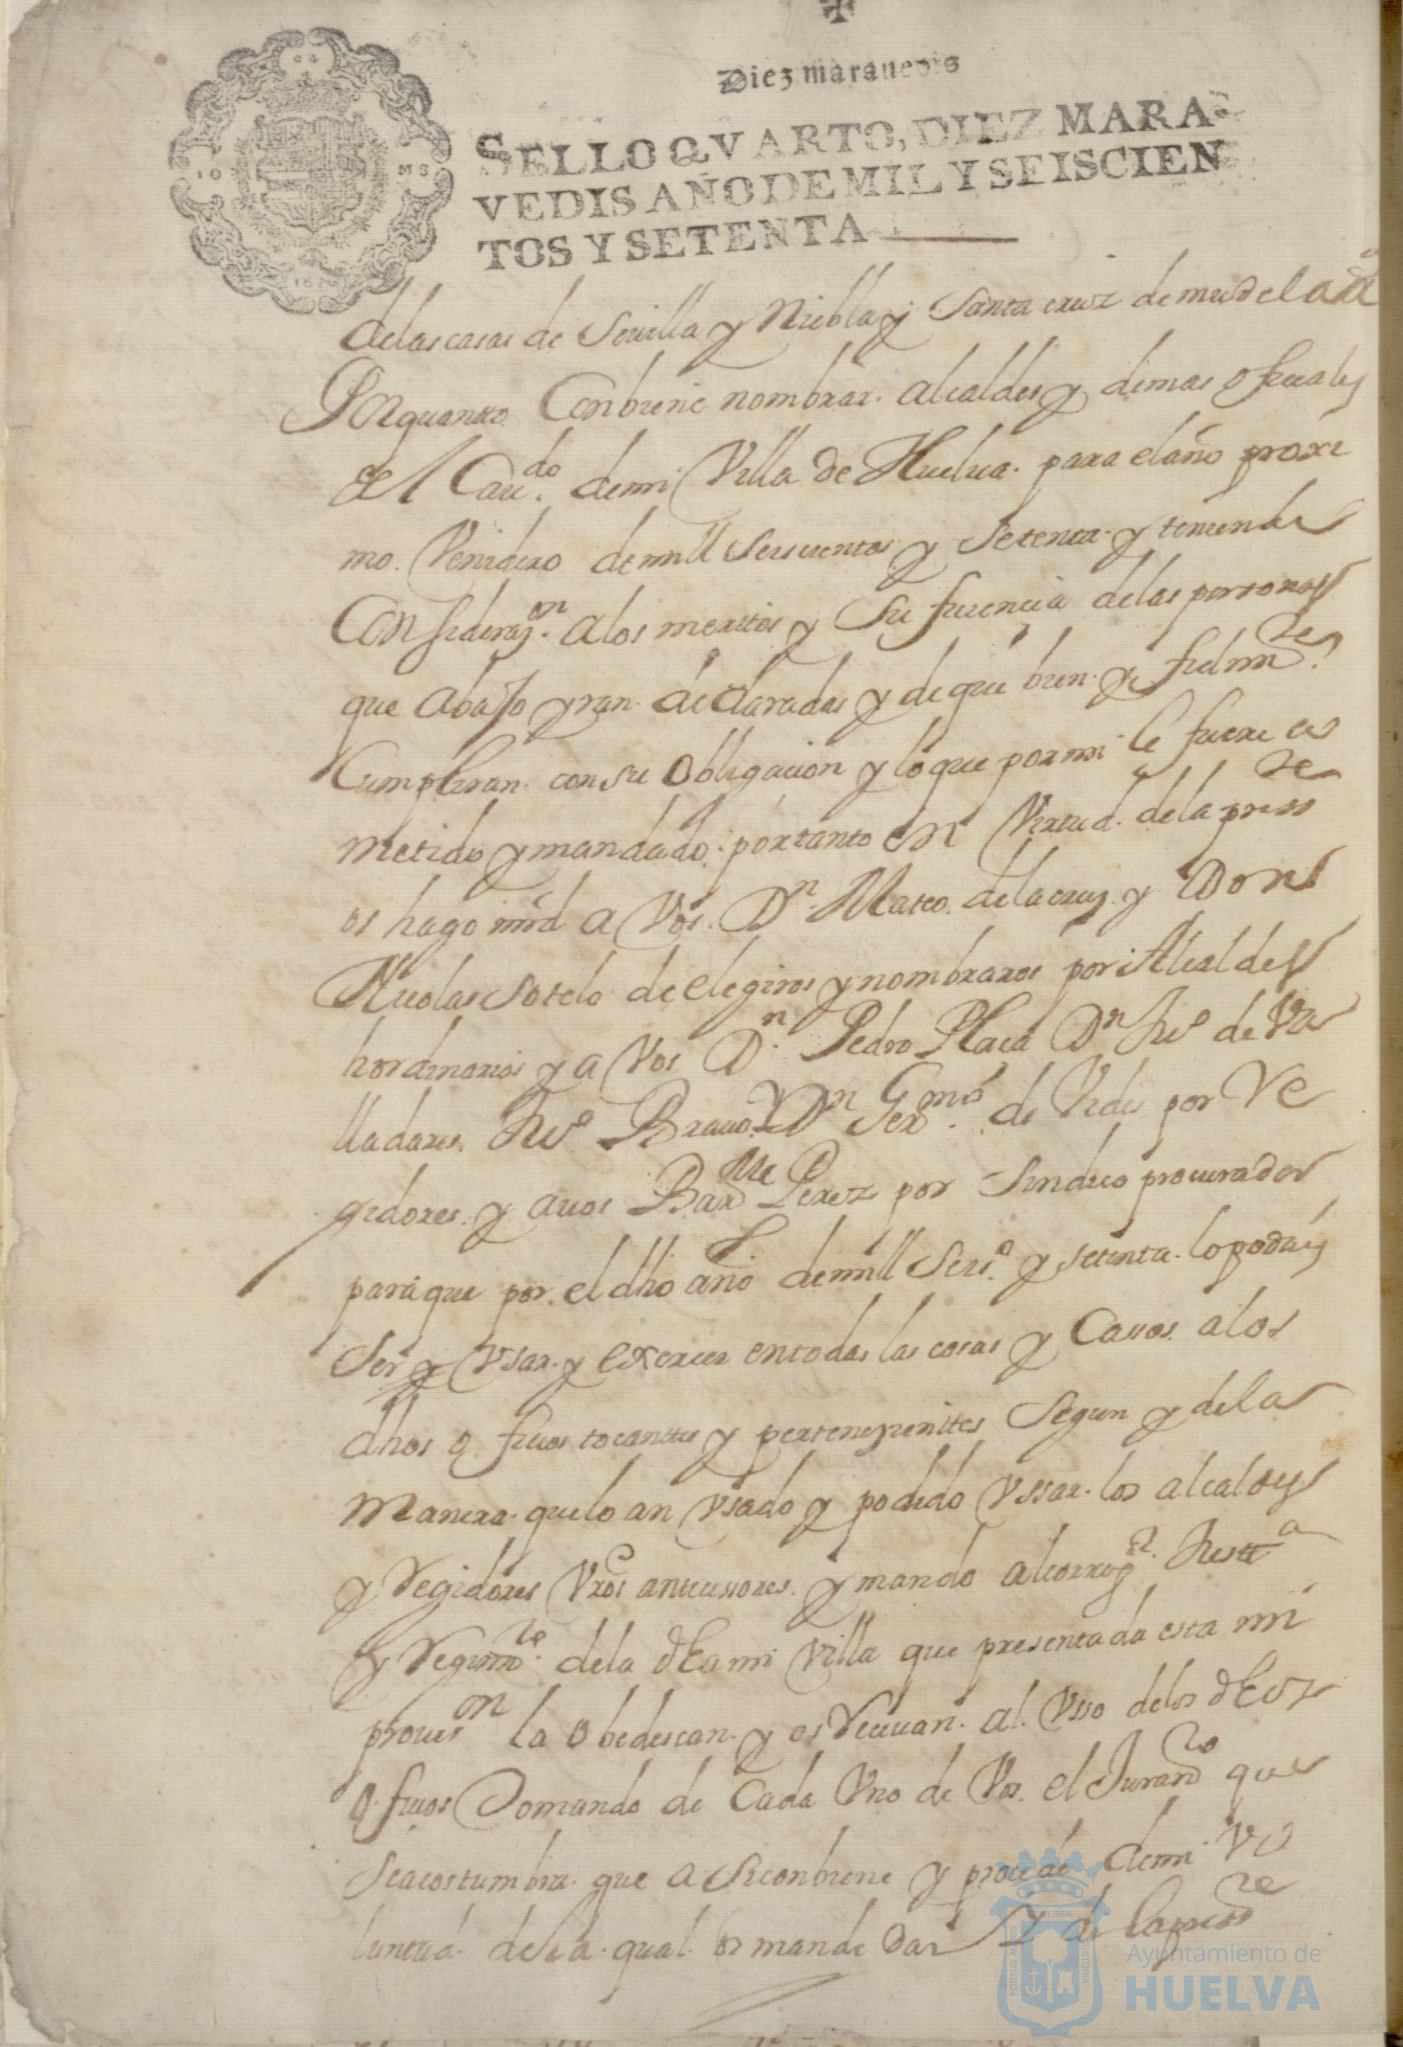 Diez maravedis
SELLO QVARTO, DIEZ MARA-
VEDIS AÑO DE MIL Y SEISCIEN
TOS Y SETENTA
de las casas de Sevilla y Niebla y Santa cruz de mudela &a
Por quanto Conbiene nombrar alcaldes y demas ofiçiales
del Cavdo. de mi Villa de Huelva para el año proxi
mo Venidero de mill seiscientos y setenta y teniendo
Consideraçon. a los meritos y suficiencia de las personas
que abajo yran declaradas y de que bien y fielmte.
Cumpliran con su obligacion y lo que por mi le fuere co
metido y mandado por tanto en Virtud de la presste
os hago mrd a Vos Dn. Mateo de la cruz y Don
Nicolas Sotelo de elegiros y nombraros por Alcaldes
hordinarios y a Vos Dn. Pedro Plaça Dn Juo de Va
lladares Juo Bravo Y Dn Germo. de Vides por Re
gidores y a vos Barme Perez por sindico procurador
para que por el dho año de mill seiso. y setenta lo podais
Ser y Vsar y exercer en todas las cosas y Cassos a los
dhos ofiçios tocantes y perteneçientes segun y de la
Manera que lo an Vsado y podido Vssar los alcaldes
y Regidores Vros antecessores y mando al corregr. Justa
y Regimto. de la dha mi Villa que presentada esta mi
provisson la obedescan y os Recivan al Vsso de los dhos
ofiçios tomando de Cada Vno de Vos el Juramto que
se acostumbra que asi conbiene y procede de mi Vo
luntad de la qual os mande dar la presste
Ayuntamiento de
HUELVA